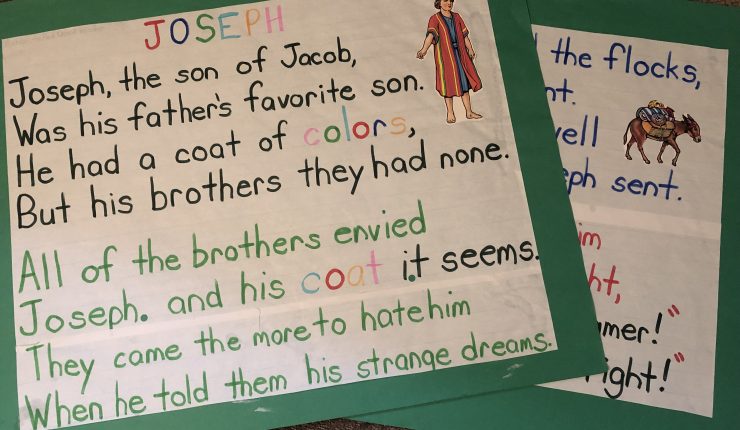 JOSEPH
Joseph, the son of Jacob,
Was his father's favorite son.
He had a coat of colors,
But his brothers they had none.
All of the brothers envied
Joseph. and his coat it seems.
They came the more to hate him
When he told them his strange dreams.
the flocks,
sent.